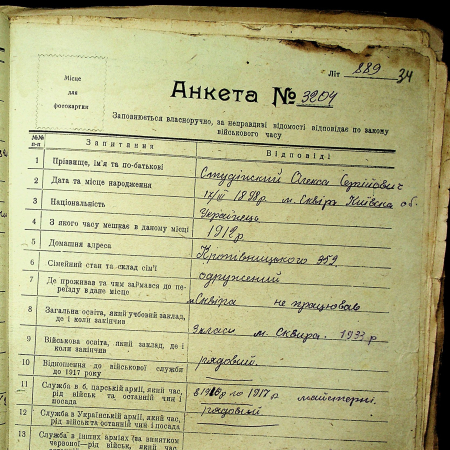 Літ 889 34
Місце
для
фотокартки
Анкета № 3204
Заповнюється власноручно, за неправдиві відомості відповідає по закону
військового часу
№№
п-п
Запитання
Відповіді
1 Прізвище, ім'я та по-батькові
Студінский Олекса Сергійович
2 Дата та місце народження
17/III 1898 р м. Сквіра Київска об.
3 Національність
Українець
4 З якого часу мешкає в даному місці
1912 р
5 Домашня адреса
Кропівницького 952
6 Сімейний стан та склад сім'ї
одружений
7 Де проживав та чим займався до переїзду в дане місце
м Сквіра не працював
8 Загальна освіта, який учбовий заклад,
де і коли закінчив
3 класи м. Сквира. 1933 р
9 Військова освіта, який заклад, де і
коли закінчив
10 Відношення до військової служби
до 1917 року
рядовий.
11 Служба в б. царській армії, який час,
рід військ та останній чин і
посада
в 1916 р по 1917 р майстерні
12 Служба в Українській армії, який час,
рід військ та останній чин і посада
рядовий
13 Служба в інших арміях (за винятком
червоної—рід військ, який час,